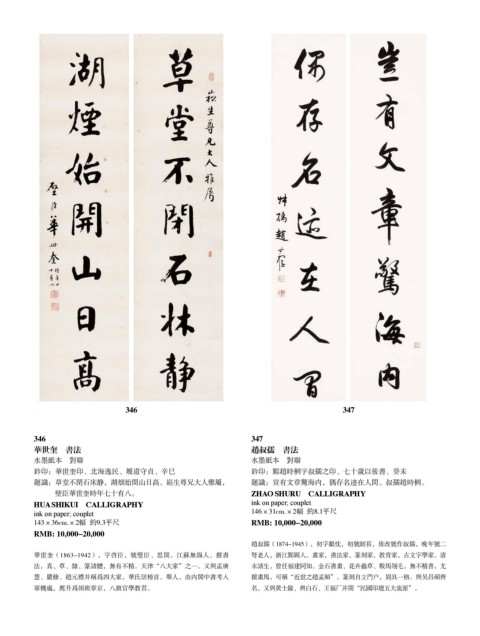 草堂不閉石牀靜
崧生尊兄大人雅屬
湖煙始開山日高
豈有文章驚海内
偶存名迹在人間
叔孺趙時棡
346
347
346
華世奎 書法
水墨紙本 對聯
鈐印：華世奎印、北海逸民、履道守貞、辛巳
題識：草堂不閉石床靜，湖烟始開山日高。崧生尊兄大人雅屬，
璧臣華世奎時年七十有八。
HUA SHIKUI CALLIGRAPHY
ink on paper; couplet
143 × 36cm. × 2幅 約9.3平尺
RMB: 10,000-20,000
華世奎（1863-1942），字啓臣，號璧臣、思闇，江蘇無錫人。擅書
法，真、草、隸、篆諸體，無有不精。天津“八大家”之一。又與孟廣
慧、嚴修、趙元禮并稱爲四大家，華氏居榜首。舉人，由内閣中書考入
軍機處，薦升爲領班章京，八旗官學教習。
347
趙叔孺 書法
水墨紙本 對聯
鈐印：鄞趙時棡字叔孺之印、七十歲以後書、癸未
題識：豈有文章驚海内，偶存名迹在人間。叔孺趙時棡。
ZHAO SHURU CALLIGRAPHY
ink on paper; couplet
146 × 31cm. × 2幅 約8.1平尺
RMB: 10,000-20,000
趙叔孺（1874-1945），初字獻忱，初號紉萇，後改號作叔孺，晚年號二
弩老人，浙江鄞縣人。畫家，書法家，篆刻家，教育家，古文字學家。清
末諸生，曾任福建同知。金石書畫、花卉蟲草、鞍馬翎毛，無不精善，尤
擅畫馬，可稱“近世之趙孟頫”。篆刻自立門戶，别具一格。與吴昌碩齊
名，又與黄士陵、齊白石、王福厂并開“民國印壇五大流派”。